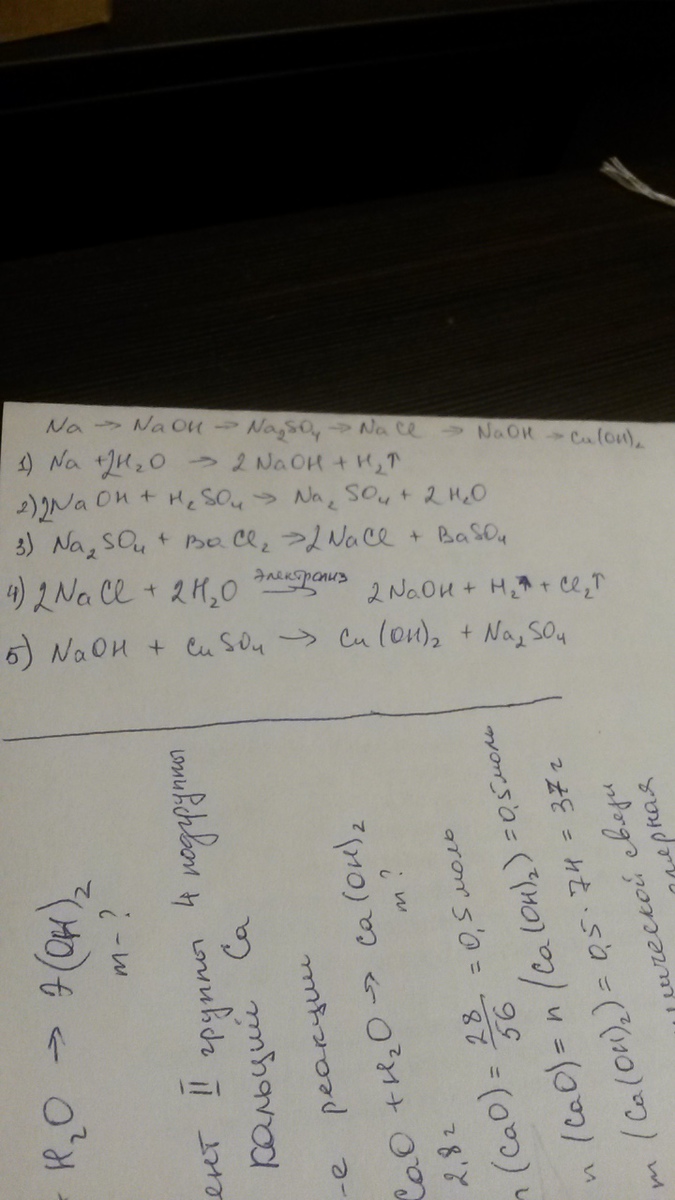 Na → NaOH → Na₂SO₄ → NaCl → NaOH → Cu(OH)₂
1) Na + 2H₂O → 2NaOH + H₂↑
2) 2NaOH + H₂SO₄ → Na₂SO₄ + 2H₂O
3) Na₂SO₄ + BaCl₂ → 2NaCl + BaSO₄
4) 2NaCl + 2H₂O электролиз → 2NaOH + H₂↑ + Cl₂↑
5) NaOH + CuSO₄ → Cu(OH)₂ + Na₂SO₄
H₂O → Э(OH)₂
m-?
ент II группы 4 подгруппы
кальций Ca
-е реакции
CaO + H₂O → Ca(OH)₂
2,8г m?
n(CaO) = 28/56 = 0,5 моль
n(CaO) = n(Ca(OH)₂) = 0,5 моль
m(Ca(OH)₂) = 0,5 · 74 = 37г
мической связи